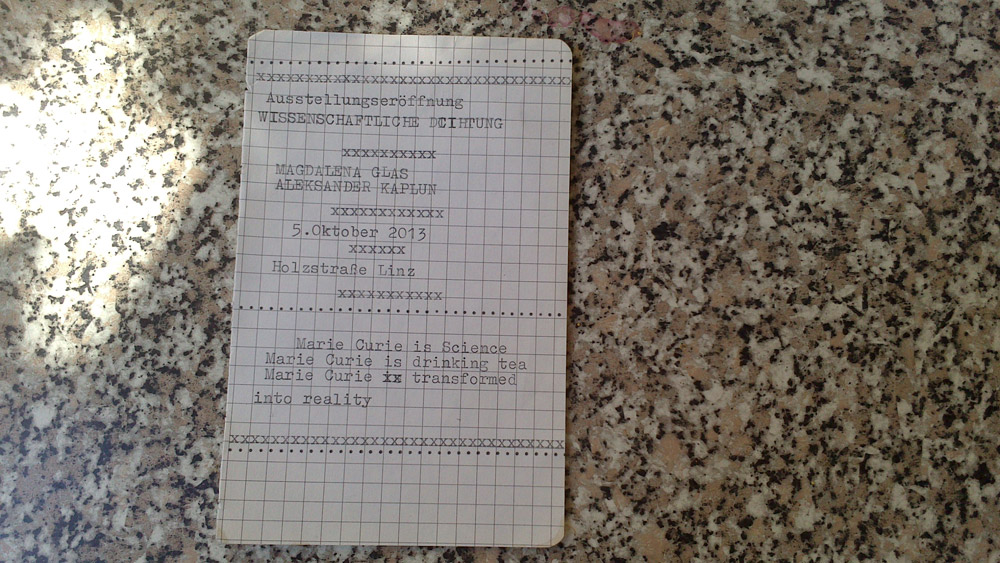 xxxxxxxxxxxxxxxxxxxxxxxxxxxxxxxxxx
Ausstellungseröffnung
WISSENSCHAFTLICHE DCIHTUNG
xxxxxxxxxx
MAGDALENA GLAS
ALEKSANDER KAPLUN
xxxxxxxxxxxx
5.Oktober 2013
xxxxxx
Holzstraße Linz
xxxxxxxxxxx
Marie Curie is Science
Marie Curie is drinking tea
Marie Curie xx transformed
into reality
xxxxxxxxxxxxxxxxxxxxxxxxxxxxxxxxxxxx